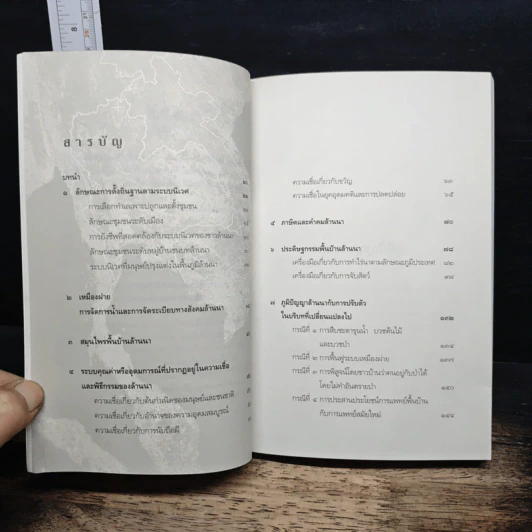 สารบัญ
บทนำ
๑ ลักษณะการตั้งถิ่นฐานตามระบบนิเวศ
การเลือกทำเลเพาะปลูกและตั้งชุมชน
ลักษณะชุมชนระดับเมือง
การยังชีพที่สอดคล้องกับระบบนิเวศของชาวล้านนา
ลักษณะชุมชนระดับหมู่บ้านชนบทล้านนา
ระบบนิเวศที่มนุษย์ปรุงแต่งในพื้นภูมิล้านนา
๒ เหมืองฝาย
การจัดการน้ำและการจัดระเบียบทางสังคมล้านนา
๓ สมุนไพรพื้นบ้านล้านนา
๔ ระบบคุณค่าหรืออุดมการณ์ที่ปรากฏอยู่ในความเชื่อ
และพิธีกรรมของล้านนา
ความเชื่อเกี่ยวกับต้นกำเนิดของมนุษย์และชนชาติ
ความเชื่อเกี่ยวกับอำนาจของความอุดมสมบูรณ์
ความเชื่อเกี่ยวกับการนับถือผี
ความเชื่อเกี่ยวกับขวัญ ๖๓
ความเชื่อในยุคอุดมคติและการปลดปล่อย ๖๕
ภาษิตและคำคมล้านนา
๖ ประดิษฐกรรมพื้นบ้านล้านนา ๗๘
เครื่องมือเกี่ยวกับการทำไร่นาตามลักษณะภูมิประเทศ
เครื่องมือเกี่ยวกับการจับสัตว์
๗ ภูมิปัญญาล้านนากับการปรับตัว
ในบริบทที่เปลี่ยนแปลงไป ๑๓๒
กรณีที่ ๑ การสืบชะตาขุนน้ำ บวชต้นไม้
และบวชป่า ๑๓๔
กรณีที่ ๒ การฟื้นฟูระบบเหมืองฝาย ๑๓๗
กรณีที่ ๓ การพิสูจน์โดยชาวบ้านว่าคนอยู่กับป่าได้
โดยไม่ทำอันตรายป่า ๑๕๐
กรณีที่ ๔ การประสานประโยชน์การแพทย์พื้นบ้าน
กับการแพทย์สมัยใหม่